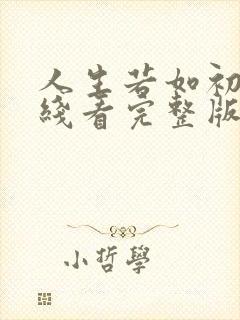 人生若如初
綫看完整版
小哲學